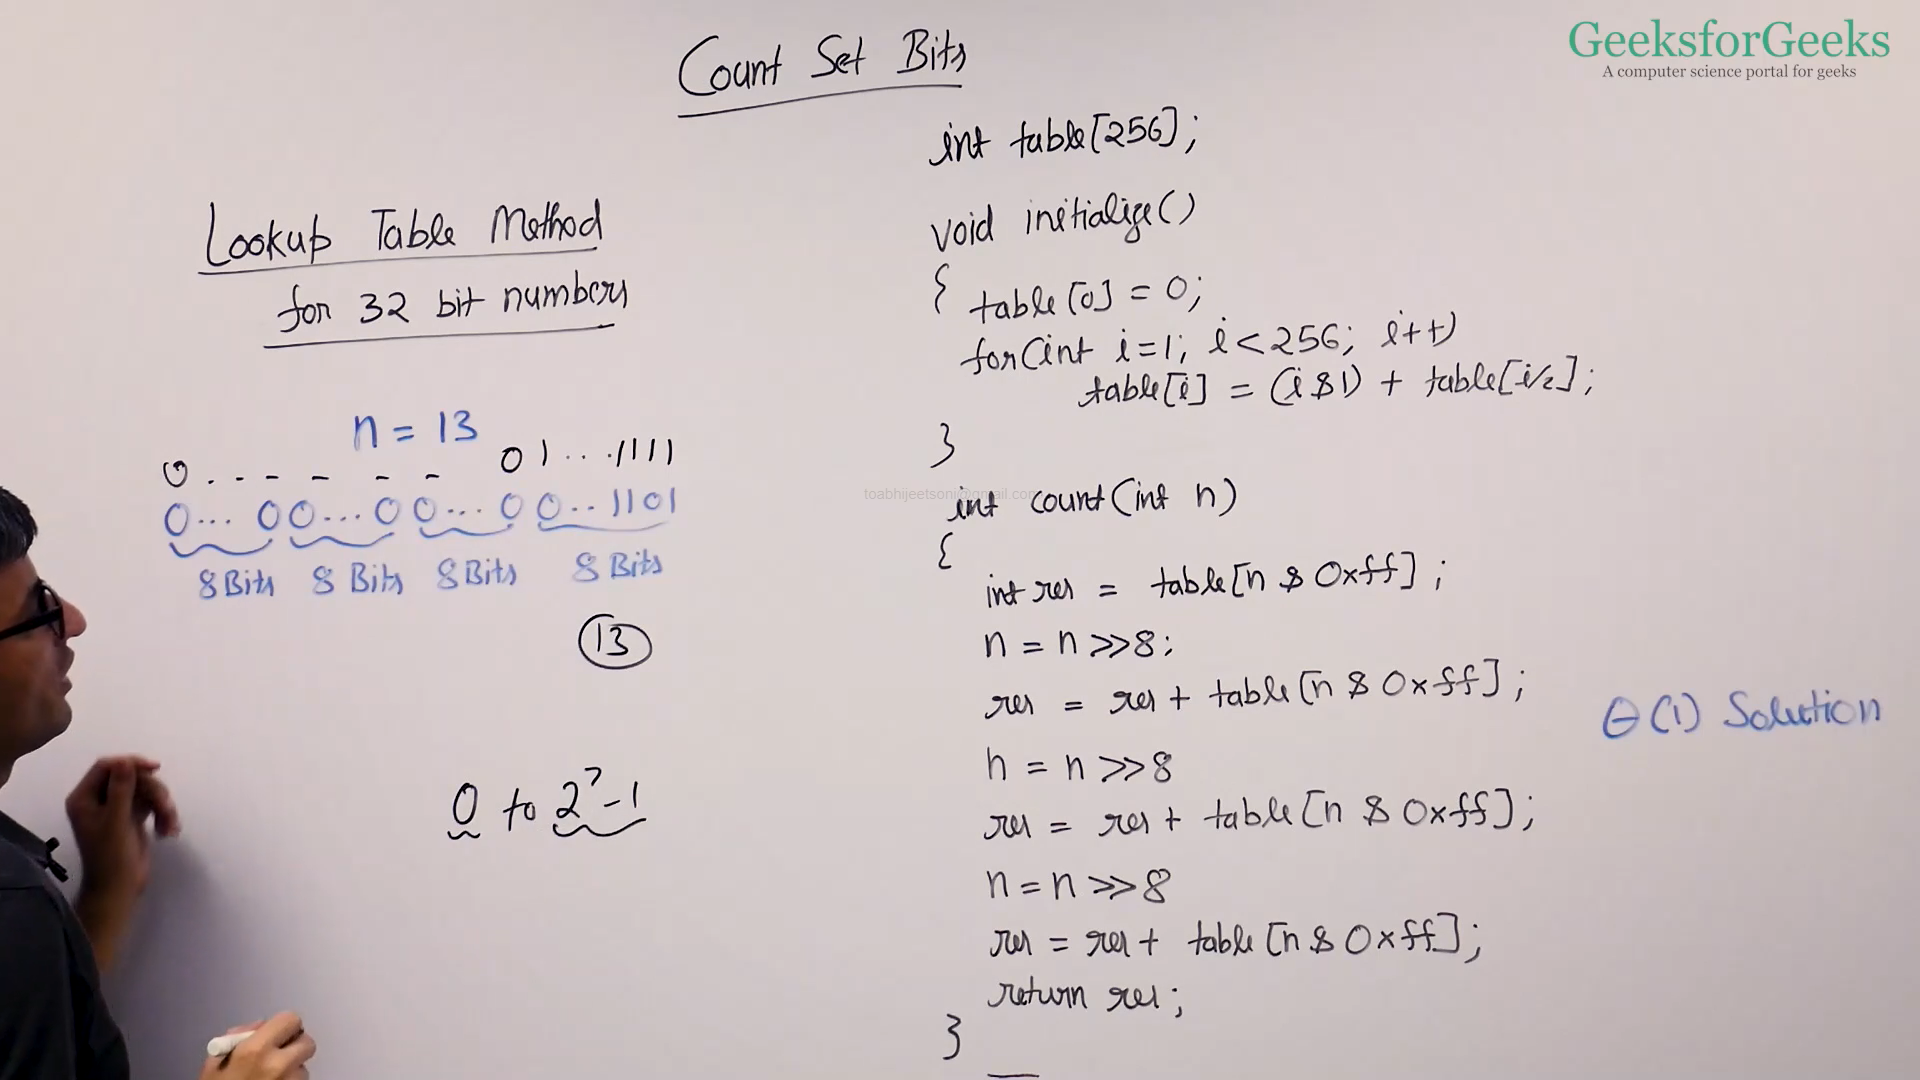 GeeksforGeeks
A computer science portal for geeks
Count Set Bits
Lookup Table Method
for 32 bit numbers
n = 13
0 . - - - - - 0 1 . . . 1111
0... 0 0...0 0... 0 0..1101
8 Bits 8 Bits 8 Bits 8 Bits
13
0 to 2^7-1
int table[256];
void initialize()
{ table[0] = 0;
for(int i=1; i<256; i++)
table[i] = (i&1) + table[i/2];
}
toabhijeetsoni@gmail.com
int count(int n)
{
int res = table[n & 0xff];
n = n >>8;
res = res + table[n & 0xff];
n = n >>8
res = res + table[n & 0xff];
n = n >>8
res = res + table[n & 0xff];
return res;
}
Θ(1) Solution